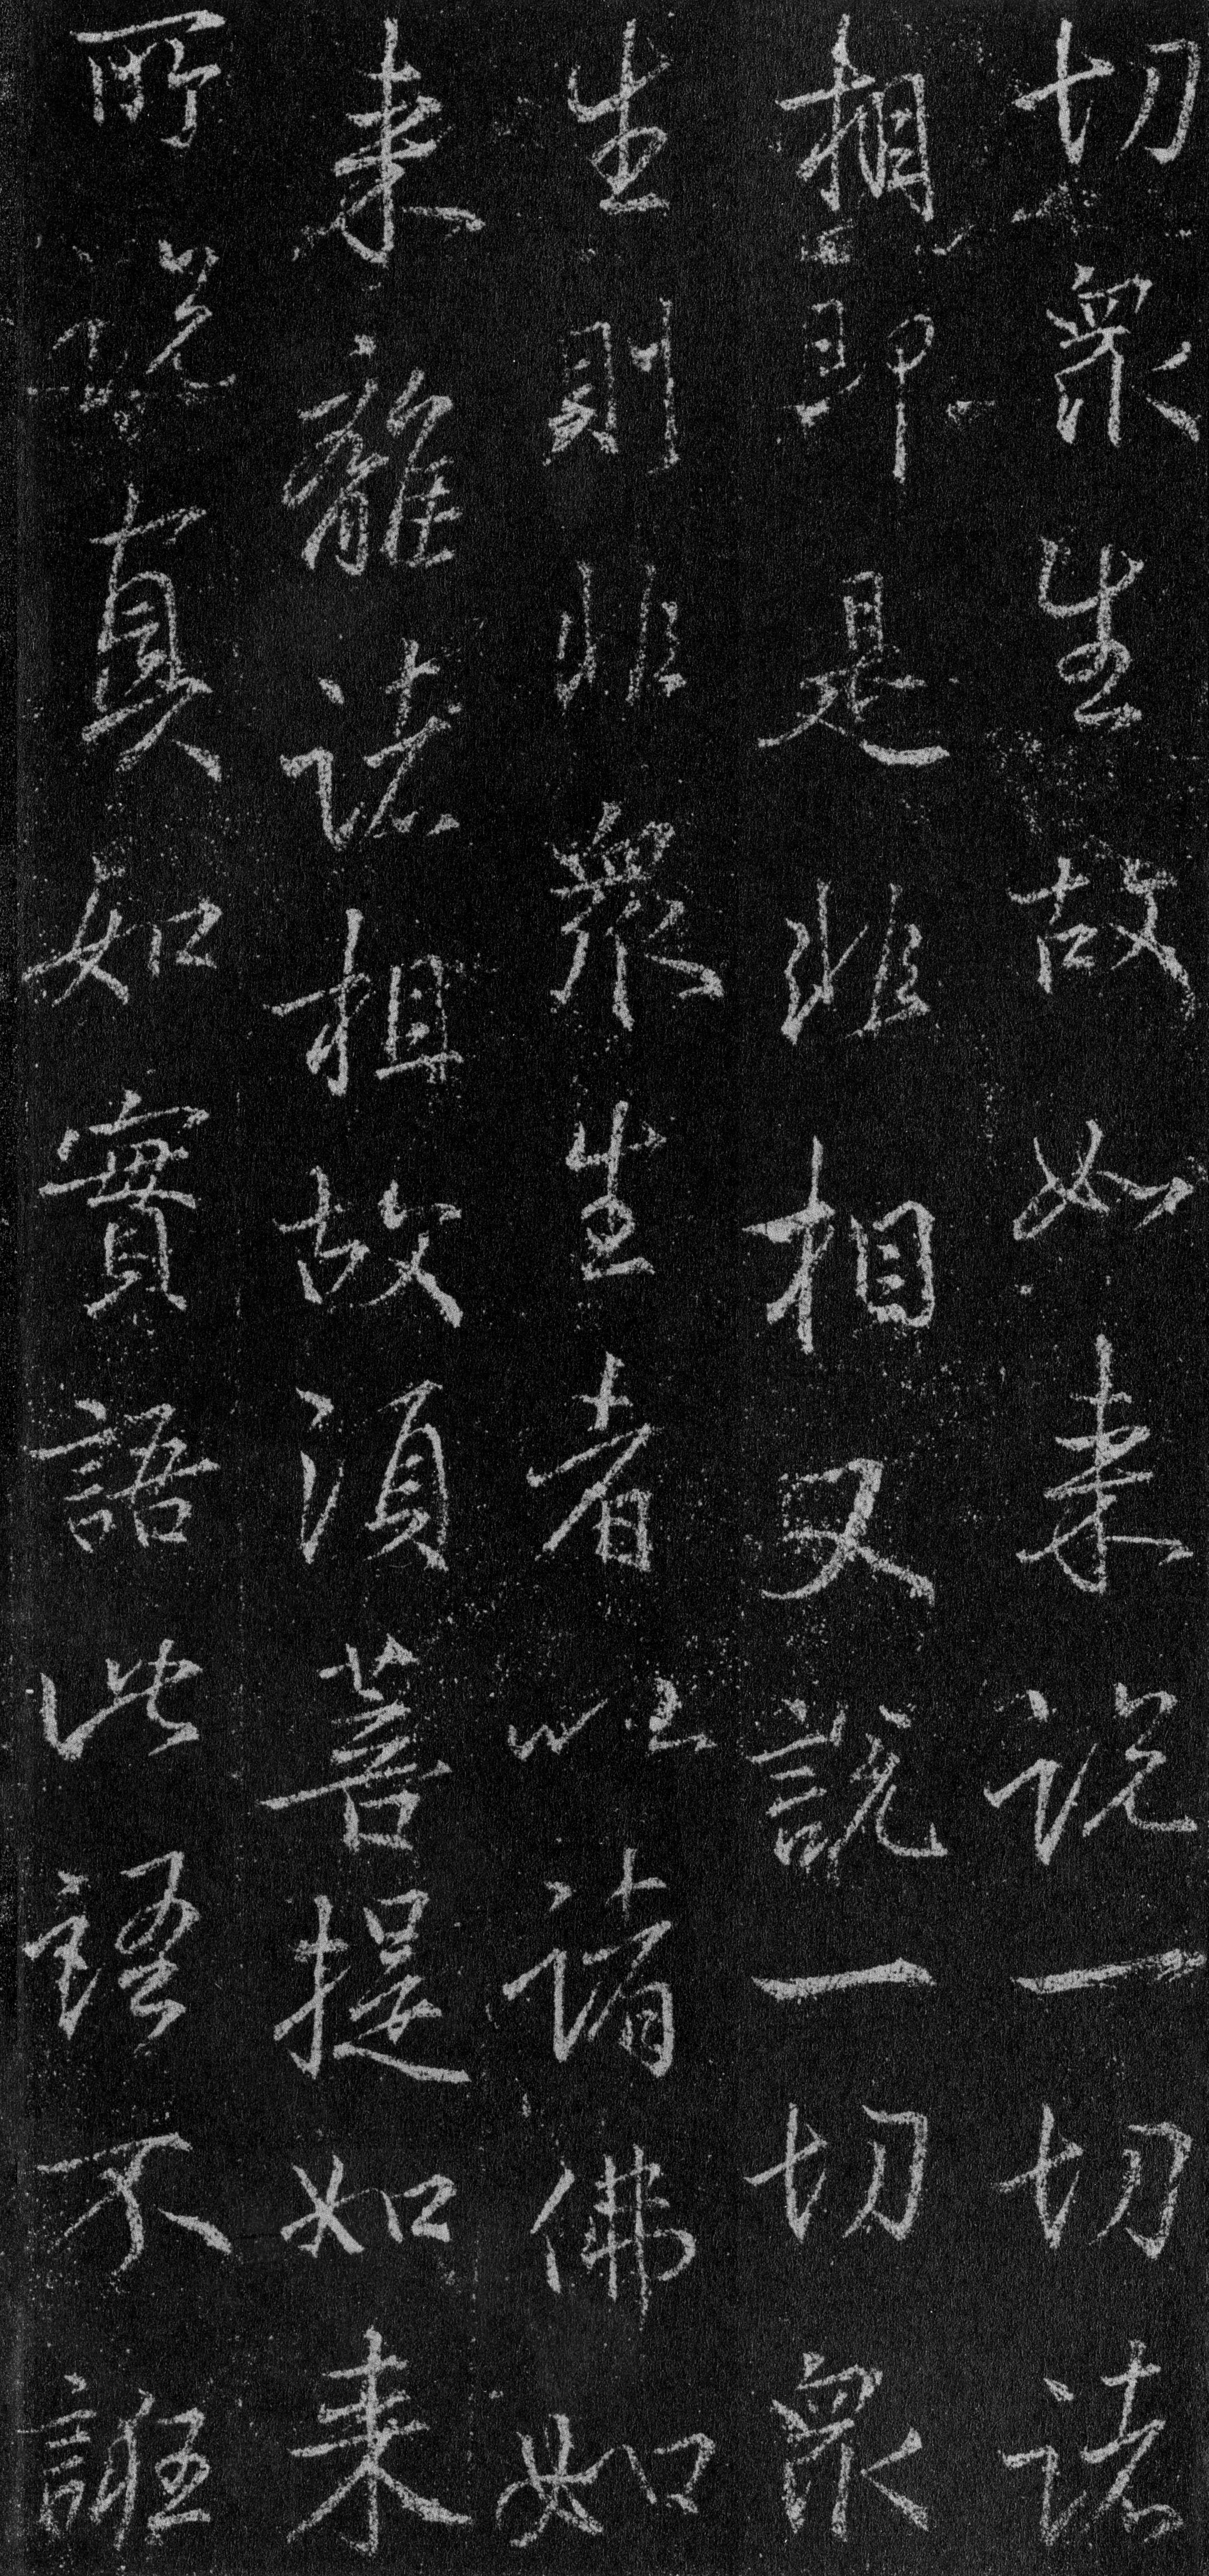 切衆生故如来說一切諸
相即是非相又說一切衆
生則非衆生者以諸佛如
来離諸相故須菩提如来
所說真如實語此語不誑